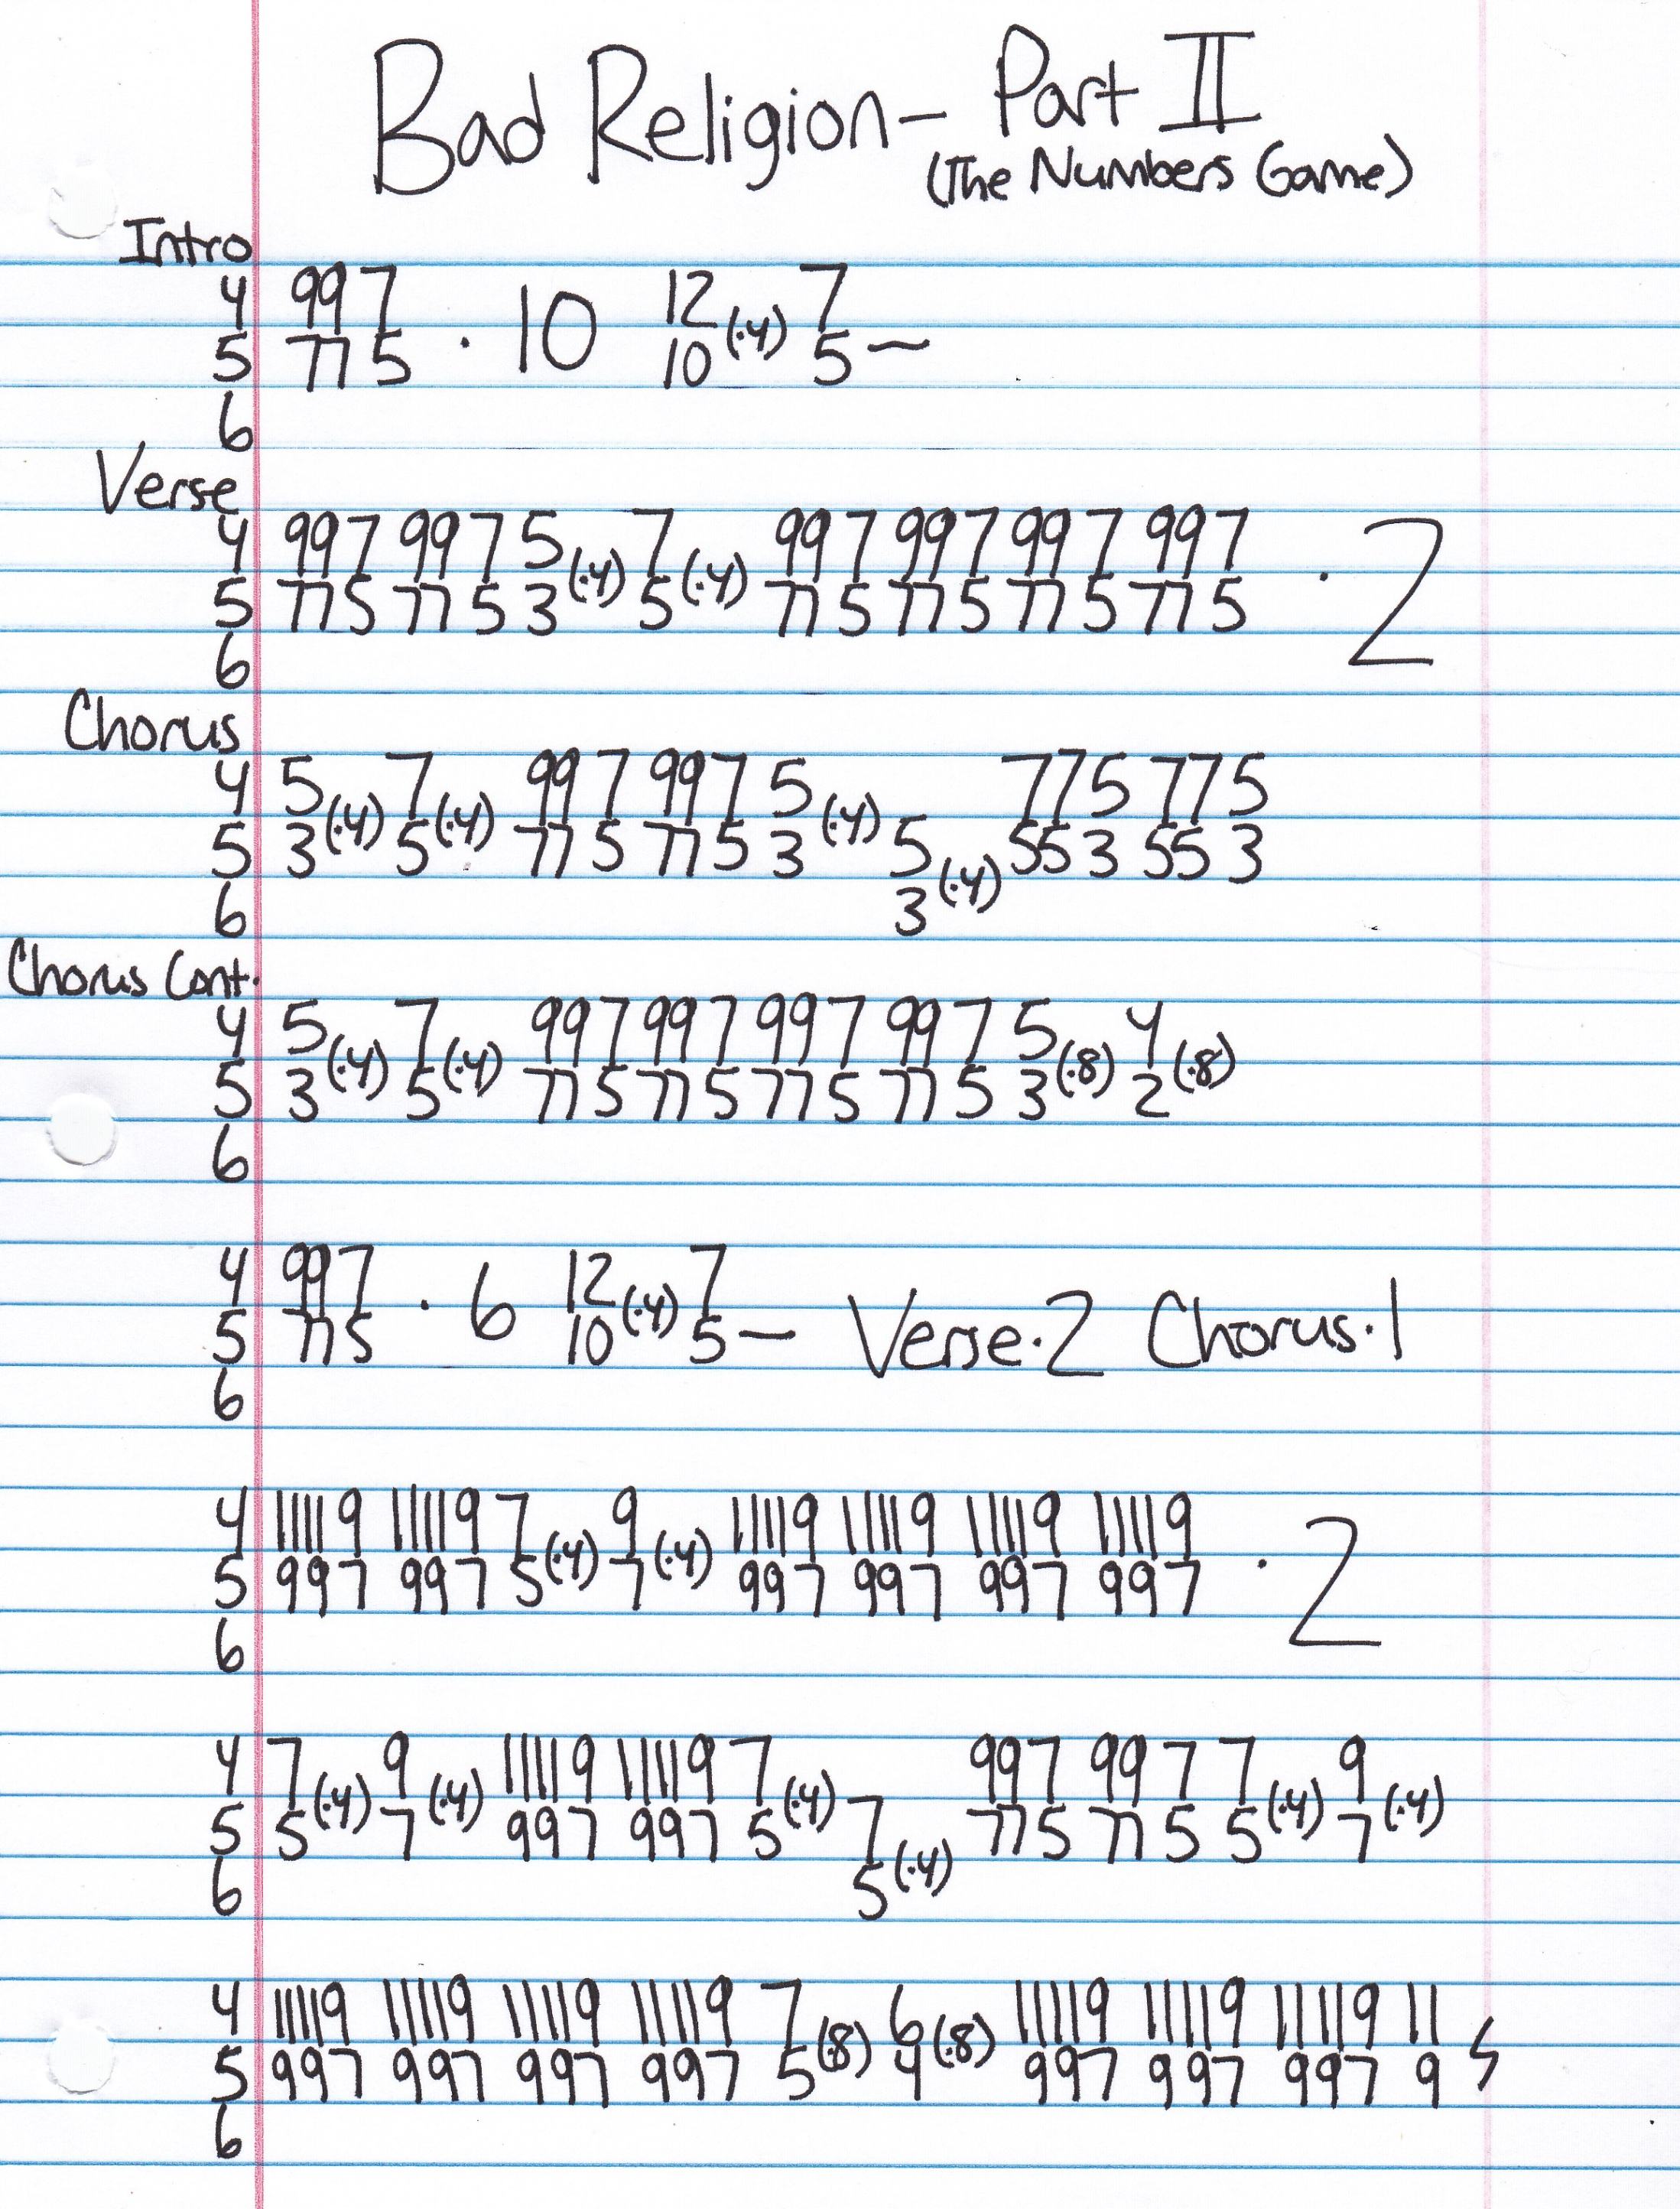 Bad Religion - Part II
(The Numbers Game)
Intro
4 997 12 7
· 10 (·4)
5 775 10 5 —
6
Verse
4 997 997 5 7 997 997 997 997
(·4) (·4) · 2
5 775 775 3 5 775 775 775 775
6
Chorus
4 5 7 997 997 5 775 775
(·4) (·4) (·4)
5 3 5 775 775 3 5 553 553
(·4)
6 3
Chorus Cont.
4 5 7 997 997 997 997 5 4
(·4) (·4) (·8) (·8)
5 3 5 775 775 775 775 3 2
6
4 997 12 7
· 6 (·4) Verse·2 Chorus·1
5 775 10 5 —
6
4 11119 11119 7 9 11119 11119 11119 11119
(·4) (·4) · 2
5 997 997 5 7 997 997 997 997
6
4 7 9 11119 11119 7 997 997 7 9
(·4) (·4) (·4) (·4) (·4)
5 5 7 997 997 5 7 775 775 5 7
(·4)
6 5
4 11119 11119 11119 11119 7 6 11119 11119 11119 11
(·8) (·8)
5 997 997 997 997 5 4 997 997 997 9
6